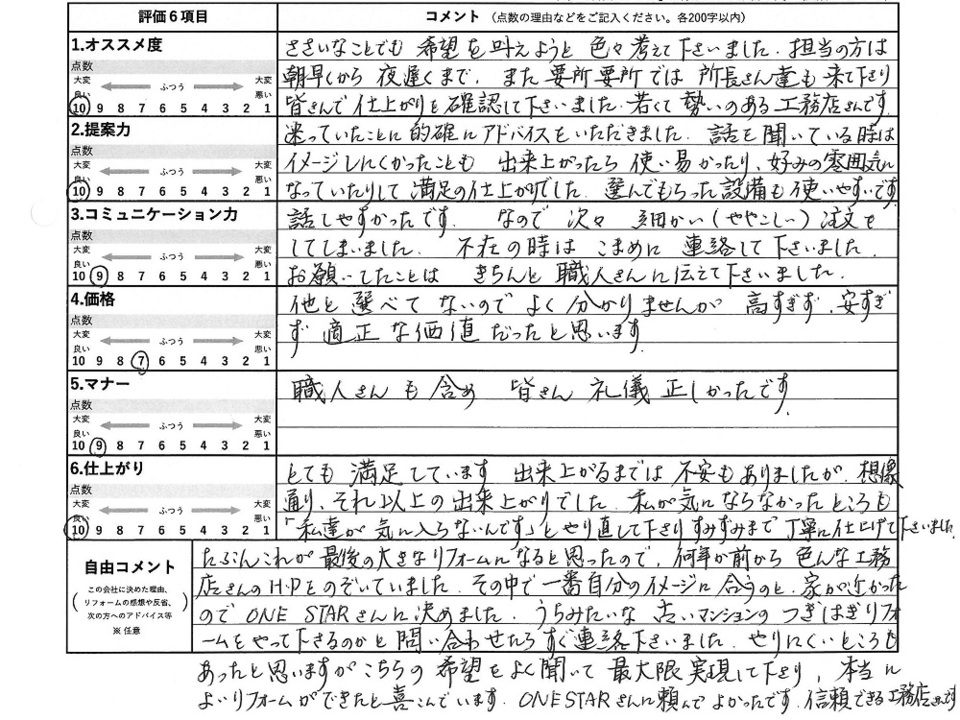 評価6項目 コメント (点数の理由などをご記入ください。各200字以内)
1.オススメ度
点数
大変良い ふつう 大変悪い
10 9 8 7 6 5 4 3 2 1
ささいなことでも 希望を叶えようと 色々考えて下さいました. 担当の方は
朝早くから 夜遅くまで. また 要所要所では 所長さん達も 来て下り
皆さんで 仕上がりを確認して下さいました. 若くて 勢いのある 工務店さんです
2.提案力
点数
大変良い ふつう 大変悪い
10 9 8 7 6 5 4 3 2 1
迷っていたことに 的確にアドバイスをいただきました. 話を聞いている時は
イメージしにくかったことも 出来上がったら 使い易かったり、好みの雰囲気に
なっていたりして 満足の仕上がりでした. 選んでもらった設備も使いやすいです
3.コミュニケーション力
点数
大変良い ふつう 大変悪い
10 9 8 7 6 5 4 3 2 1
話しやすかったです. なので 次々 細かい(ややこしい)注文を
してしまいました. 不在の時は こまめに 連絡して下さいました
お願いしたことは きちんと 職人さんに伝えて下さいました.
4.価格
点数
大変良い ふつう 大変悪い
10 9 8 7 6 5 4 3 2 1
他と 選べて ないので よく 分かりませんが 高すぎず、安すぎ
ず 適正 な価値 だったと思います
5.マナー
点数
大変良い ふつう 大変悪い
10 9 8 7 6 5 4 3 2 1
職人さん も 含め 皆さん 礼儀 正しかったです
6.仕上がり
点数
大変良い ふつう 大変悪い
10 9 8 7 6 5 4 3 2 1
とても 満足しています 出来上がるまでは 不安もありましたが、想像
通り、それ以上の出来上がりでした. 私が気にならなかったところも
「私達が 気に入らないんです」とやり直して下さりすみずみまで 丁寧に仕上げて下さいました
自由コメント
(この会社に決めた理由、リフォームの感想や反省、次の方へのアドバイス等)
※ 任意
たぶんこれが 最後の大きなリフォームになると思ったので、何年か前から 色んな工務
店さんのH.Pをのぞいていました. その中で一番自分のイメージに合うのと、家が近かった
ので ONE STARさんに決めました. うちみたいな 古いマンションの つぎはぎリフォ
ームをやって下さるのかと 問い合わせたら すぐ連絡下さいました. やりにくいところも
あったと思いますが こちらの 希望をよく聞いて 最大限 実現して下さり, 本当に
よいリフォームができたと喜こんでいます. ONE STARさんに頼んで よかったです. 信頼できる工務店さんです